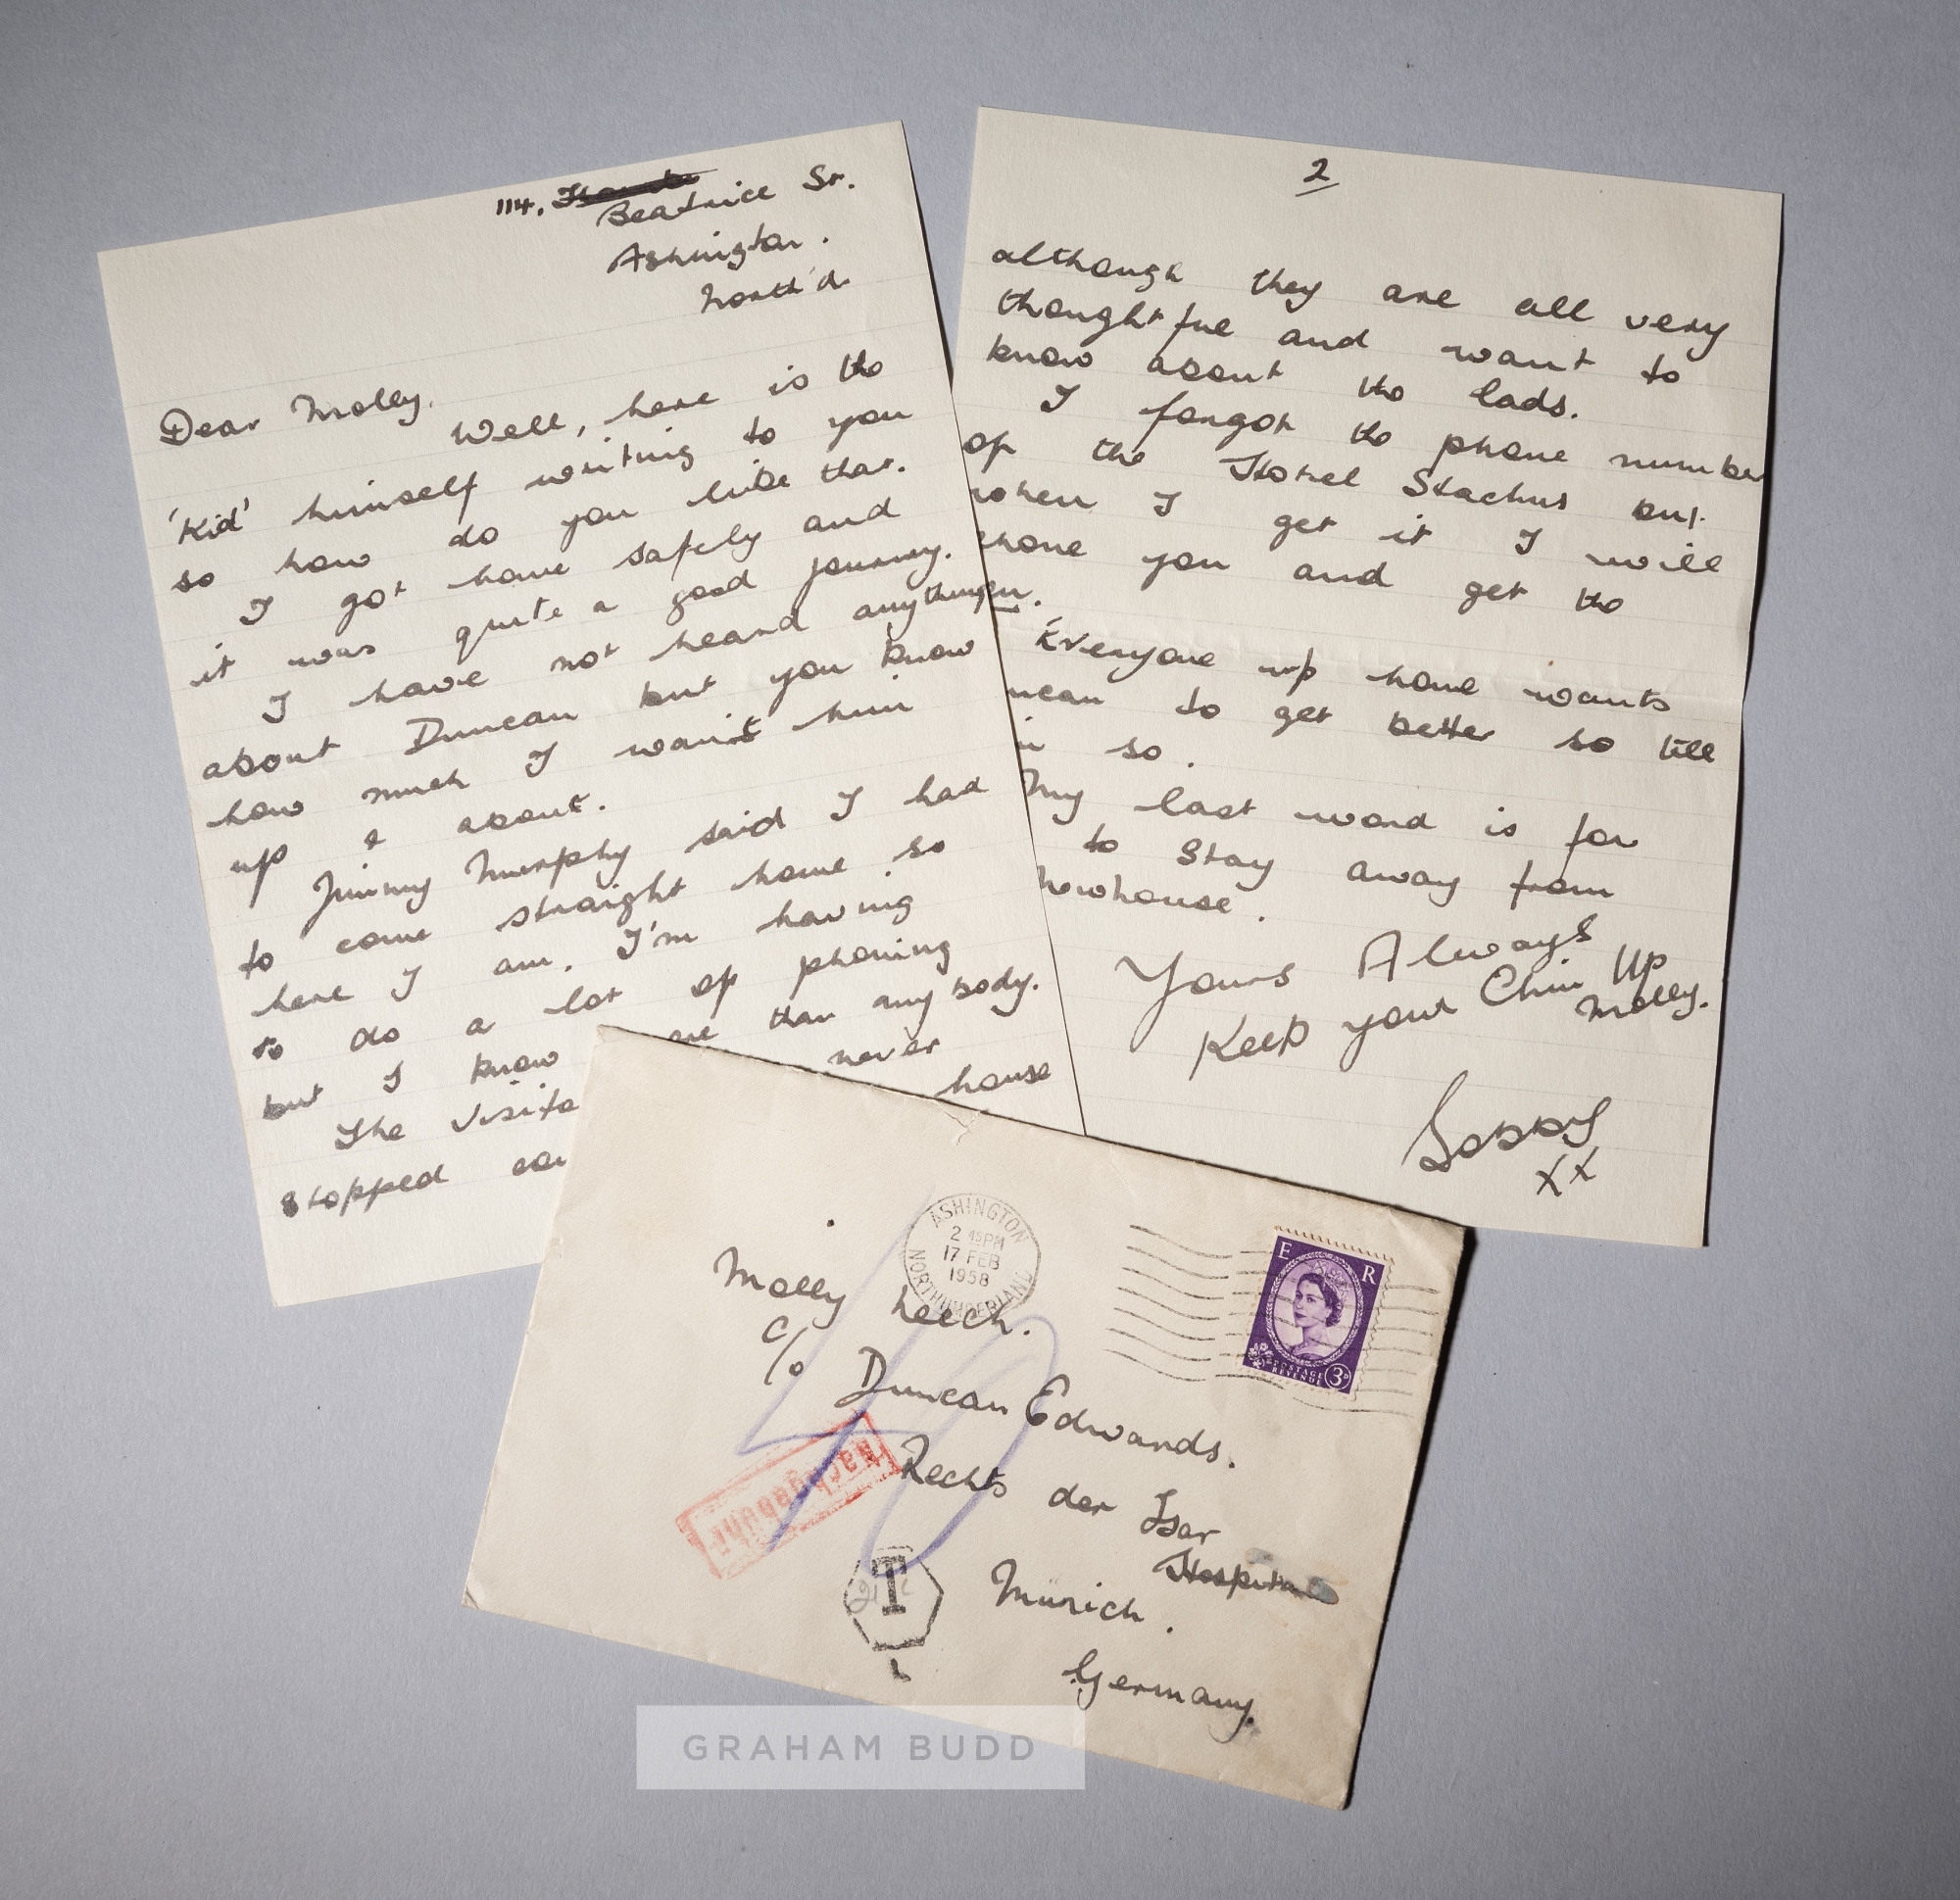 114. Beatrice St.
Ashington.
North'd.
Dear Molly,
Well, here is the
'Kid' himself writing to you
so how do you like that.
I got home safely and
it was quite a good journey.
I have not heard anything
about Duncan but you know
how much I want him
up & about.
Jimmy Murphy said I had
to come straight home so
here I am. I'm having
to do a lot of phoning
but I know are than anybody.
The never
stopped house
2
although they are all very
thoughtful and want to
know about the lads.
I forgot the phone number
of the Hotel Stachus but
when I get it I will
phone you and get the
Everyone up home wants
to get better so till
so.
My last word is for
to stay away from
Yours Always
Keep your Chin Up
Molly.
Bobby
xx
ASHINGTON
2 45PM
17 FEB
1958
NORTHUMBERLAND
E R
POSTAGE
REVENUE
3D
Molly Leech.
c/o
Duncan Edwards.
Rechts der Isar
Hospital
Munich.
Germany.
40
Nachgebühr
T
GRAHAM BUDD